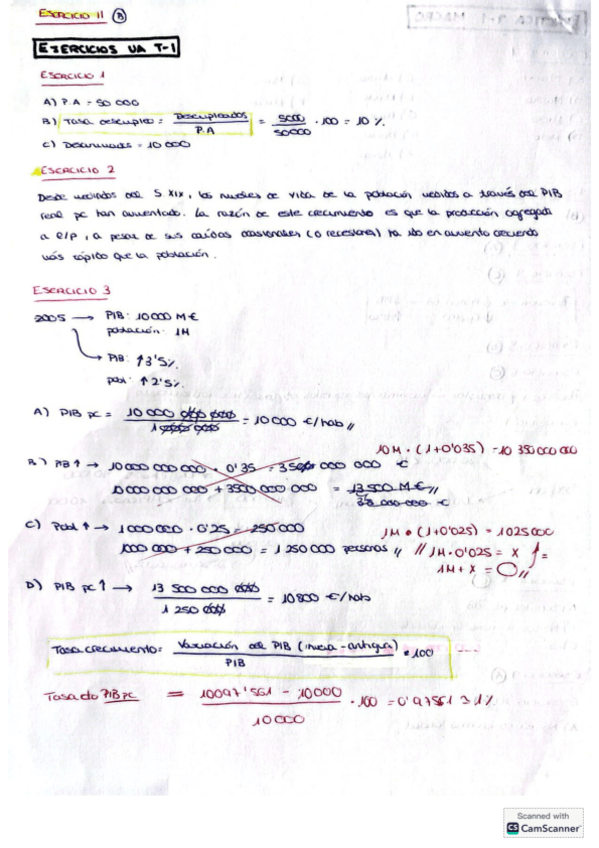 EJERCICIO 11 (B)
EJERCICIOS UA T-1
EJERCICIO 1
A) P.A = 50 000
B) Tasa desempleo = Desempleados / P.A = 5000 / 50000 · 100 = 10 %
C) Desanimados = 10 000
EJERCICIO 2
Desde mediados del S. XIX, los niveles de vida de la población medidos a través del PIB
real pc han aumentado. La razón de este crecimiento es que la producción agregada
a l/p, a pesar de sus caídas ocasionales (o recesiones) ha ido en aumento creciendo
más rápido que la población.
EJERCICIO 3
2005 → PIB: 10000 M€
población: 1M
→ PIB: ↑3'5%
pob: ↑2'5%
A) PIB pc = 10 000 000 000 / 1 000 000 = 10 000 €/hab //
10M · (1+0'035) = 10 350 000 000
B) PIB ↑ → 10 000 000 000 · 0'35 = 3500 000 000 €
10 000 000 000 + 3500 000 000 = 13 500 M€ //
C) Pobl ↑ → 1000 000 · 0'25 = 250 000
1M · (1+0'025) = 1025000
1000 000 + 250 000 = 1 250 000 personas // // 1M · 0'025 = x
1M + x =
D) PIB pc ↑ → 13 500 000 000 / 1 250 000 = 10800 €/hab
Tasa crecimiento = Variación del PIB (nueva - antigua) / PIB · 100
Tasa cto PIB pc = 10097'561 - 10000 / 10000 · 100 = 0'97561 ≅ 1%
Scanned with
CS CamScanner